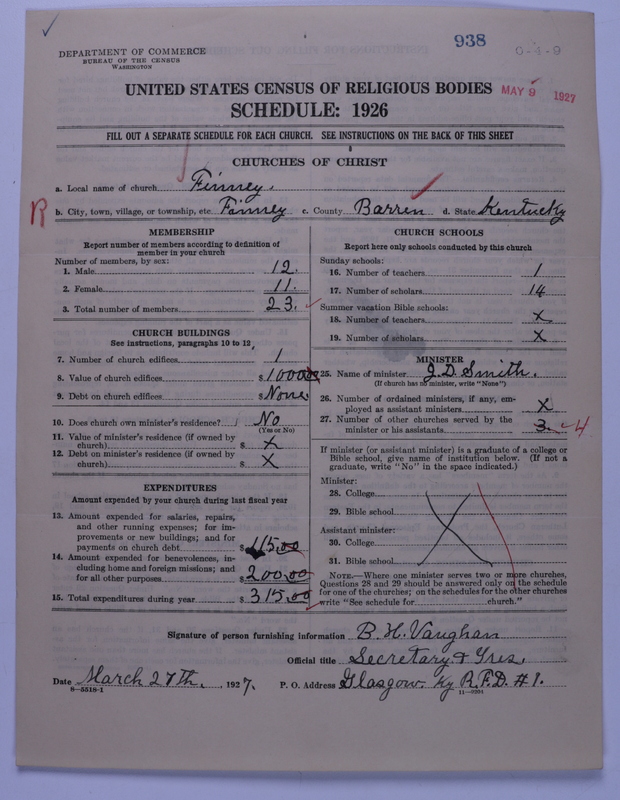 938
0-4-9
DEPARTMENT OF COMMERCE
BUREAU OF THE CENSUS
WASHINGTON
UNITED STATES CENSUS OF RELIGIOUS BODIES
MAY 9 1927
SCHEDULE: 1926
FILL OUT A SEPARATE SCHEDULE FOR EACH CHURCH. SEE INSTRUCTIONS ON THE BACK OF THIS SHEET
CHURCHES OF CHRIST
a. Local name of church Finney.
R
b. City, town, village, or township, etc. Finney c. County Barren d. State Kentucky
MEMBERSHIP
Report number of members according to definition of
member in your church
Number of members, by sex:
1. Male 12.
2. Female 11.
3. Total number of members 23.
CHURCH BUILDINGS
See instructions, paragraphs 10 to 12
7. Number of church edifices 1
8. Value of church edifices $1000.00
9. Debt on church edifices $None
10. Does church own minister's residence? No
(Yes or No)
11. Value of minister's residence (if owned by
church) $ X
12. Debt on minister's residence (if owned by
church) $ X
EXPENDITURES
Amount expended by your church during last fiscal year
13. Amount expended for salaries, repairs,
and other running expenses; for im-
provements or new buildings; and for
payments on church debt $115.00
14. Amount expended for benevolences, in-
cluding home and foreign missions; and
for all other purposes $200.00
15. Total expenditures during year $315.00
CHURCH SCHOOLS
Report here only schools conducted by this church
Sunday schools:
16. Number of teachers 1
17. Number of scholars 14
Summer vacation Bible schools:
18. Number of teachers X
19. Number of scholars X
MINISTER
25. Name of minister J. D. Smith.
(If church has no minister, write "None")
26. Number of ordained ministers, if any, em-
ployed as assistant ministers X
27. Number of other churches served by the
minister or his assistants 3. 4
If minister (or assistant minister) is a graduate of a college or
Bible school, give name of institution below. (If not a
graduate, write "No" in the space indicated.)
Minister:
28. College
29. Bible school
Assistant minister:
30. College
31. Bible school
NOTE.—Where one minister serves two or more churches,
Questions 28 and 29 should be answered only on the schedule
for one of the churches; on the schedules for the other churches
write "See schedule for church."
Signature of person furnishing information B. H. Vaughan
Official title Secretary & Tres.
Date March 27th, 1927. P. O. Address Glasgow. Ky R.F.D. #1.
8—5518-1